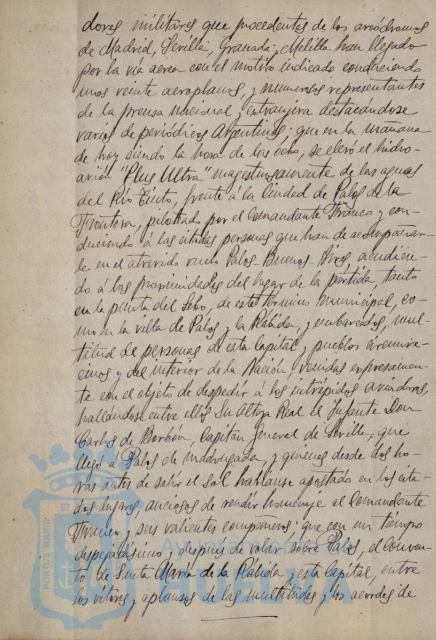 dores militares que procedentes de los aeródromos
de Madrid, Sevilla, Granada y Melilla han llegado
por la vía aerea con el motivo indicado conduciendo
unos veinte aeroplanos, y numerosos representantes
de la prensa nacional y extranjera destacándose
varios de periódicos Argentinos; que en la mañana
de hoy siendo la hora de las ocho, se elevó el hidro-
avión "Plus Ultra" magestuosamente de las aguas
del Río Tinto, frente á la Ciudad de Palos de la
Frontera, pilotado por el Comandante Franco y con-
duciendo á las citadas personas que han de acompañar-
le en el atrevido vuelo Palos Buenos Aires, acudien-
do á las proximidades del lugar de la partida, tanto
en la punta del Sebo, de este término Municipal, co-
mo en la villa de Palos y la Rábida, y embarcados, mul-
titud de personas de esta Capital y pueblos circunve-
cinos y del interior de la Nación venidas expresamen-
te con el objeto de despedir á los intrépidos aviadores,
hallándose entre ellos Su Alteza Real el Infante Don
Carlos de Borbón, Capitán General de Sevilla, que
llegó á Palos de madrugada, y quienes desde dos ho-
ras antes de salir el sol habíanse apostado en los cita-
dos lugares ansiosos de rendir homenaje al Comandante
Franco y sus valientes compañeros; que con un tiempo
despejadísimo y después de volar sobre Palos, el Conven-
to de Santa María de la Rábida y esta Capital, entre
los vítores y aplausos de las multitudes y los acordes de
PORTUS MARIS
Ayuntamiento
HUELVA